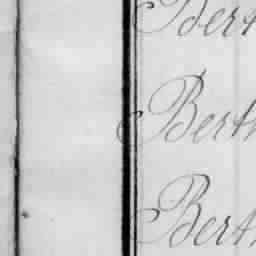 Bert
Berth
Berth